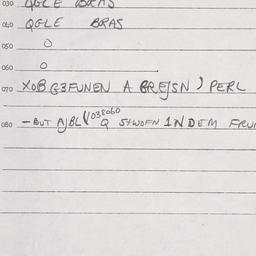 030 QGLE BRAS
040 QGLE BRAS
050 O
060 O
070 XOB G3FUNEN A BREJSN ) PERL
080 - BUT AJBL ( 038060 Q SYWOFN 1N DEM FRUM